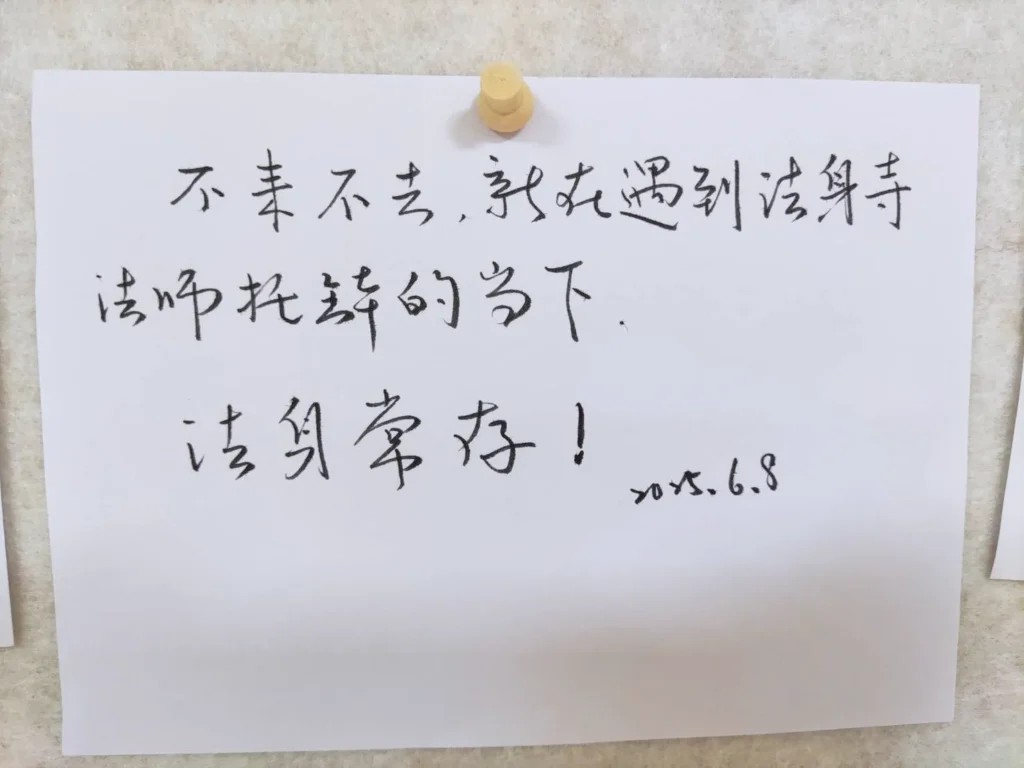 不来不去，就在遇到法身寺
法师托钵的当下.
法身常存！
2025.6.8